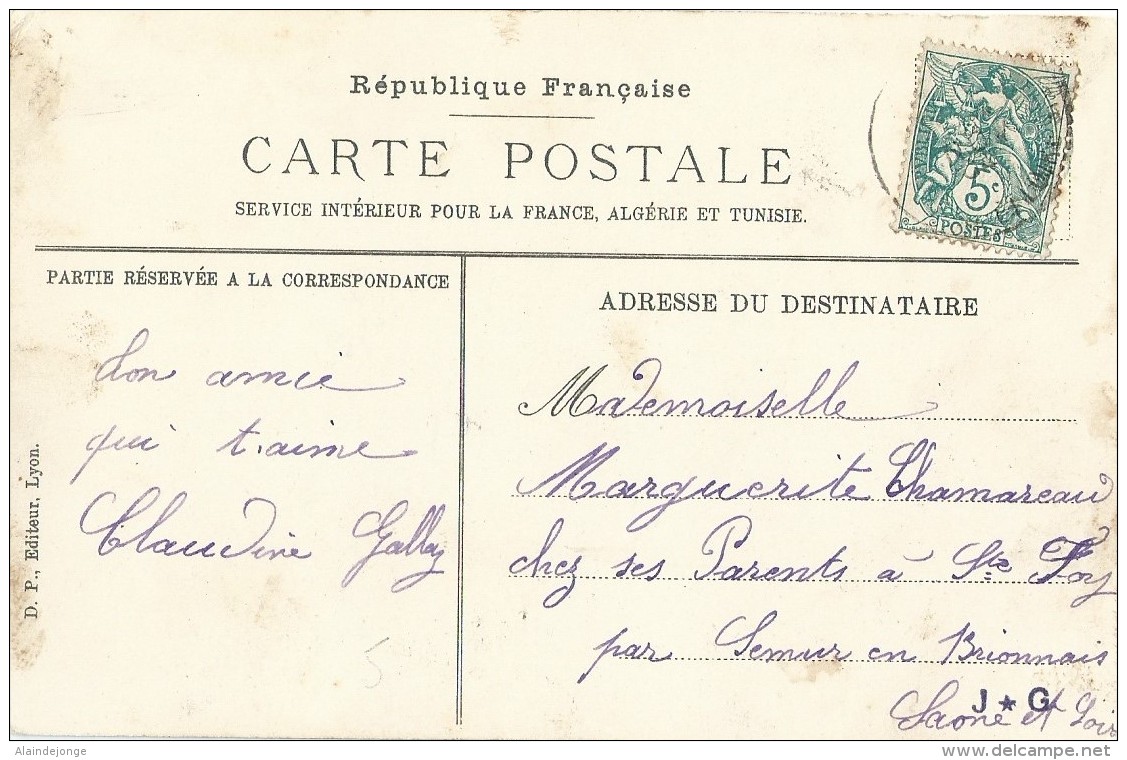 République Française
CARTE POSTALE
SERVICE INTÉRIEUR POUR LA FRANCE, ALGÉRIE ET TUNISIE.
5c
POSTES
PARTIE RÉSERVÉE A LA CORRESPONDANCE
ton amie
qui t'aime
Claudine Gallay
D. P., Editeur, Lyon.
5
ADRESSE DU DESTINATAIRE
Mademoiselle
Marguerite Chamareau
chez ses Parents à Ste Foy
par Semur en Brionnais
Saone et Loir
J ★ G
Alaindejonge
delcampe.net